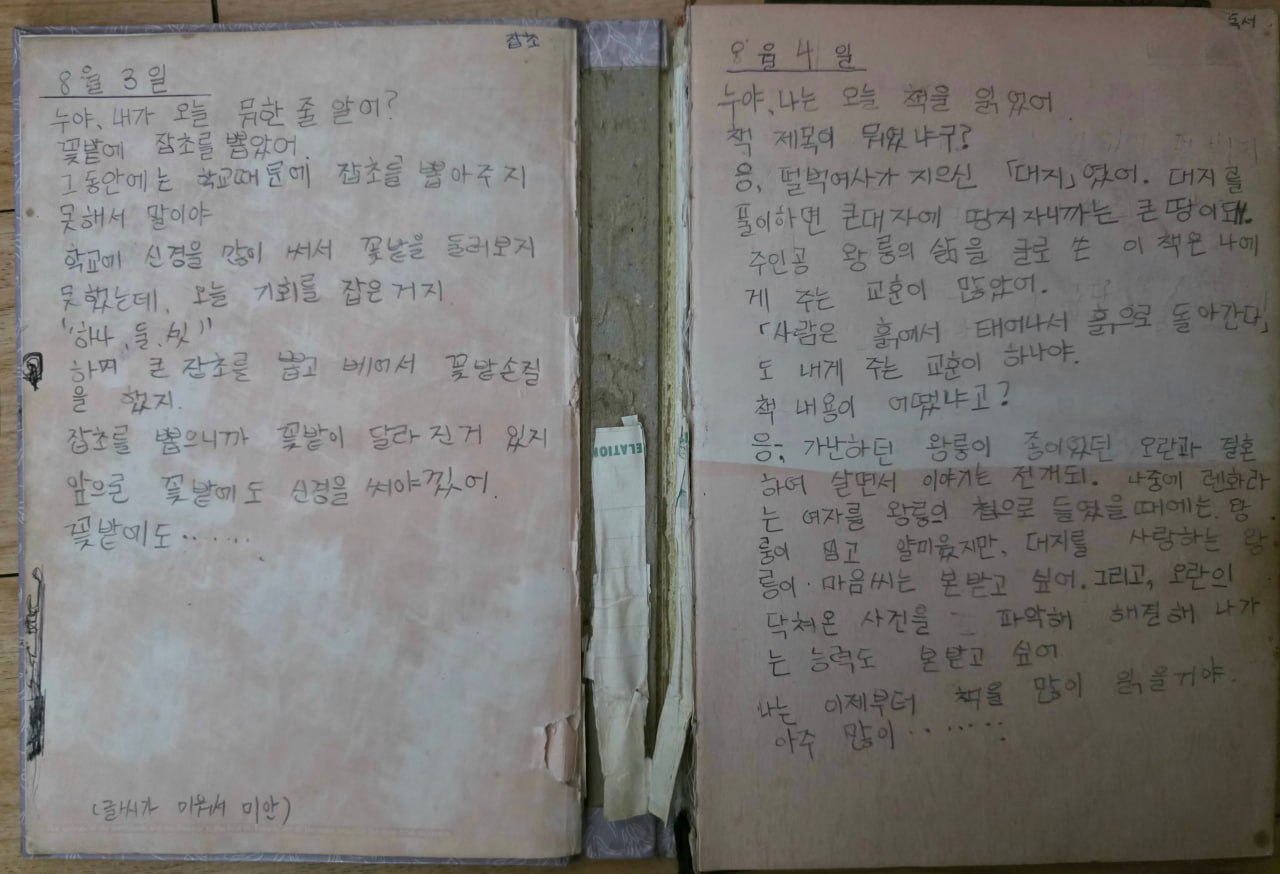 잡초
8월 3일
누야, 내가 오늘 뭐한 줄 알어?
꽃밭에 잡초를 뽑았어.
그동안에는 학교때문에 잡초를 뽑아주지
못해서 말이야
학교에 신경을 많이 써서 꽃밭을 둘러보지
못했는데, 오늘 기회를 잡은거지.
"하나, 둘, 셋"
하며 큰 잡초를 뽑고 베어서 꽃밭손질
을 했지.
잡초를 뽑으니까 꽃밭이 달라진거 있지
앞으론 꽃밭에도 신경을 써야겠어.
꽃밭에도.......
(글씨가 미워서 미안)
ELATION
독서
8월 4일
누야, 나는 오늘 책을 읽었어
책 제목이 뭐였냐구?
응, 펄벅여사가 지으신 「대지」였어. 대지를
풀이하면 큰대자에 땅지자니까는 큰 땅이돼.
주인공 왕룽의 삶을 글로 쓴 이 책은 나에
게 주는 교훈이 많았어.
「사람은 흙에서 태어나서 흙으로 돌아간다」
도 내게 주는 교훈이 하나야.
책 내용이 어땠냐고?
응, 가난하던 왕룽이 종이었던 오란과 결혼
하여 살면서 이야기는 전개되. 나중에 렌화라
는 여자를 왕룽의 첩으로 들였을때에는 왕
룽이 밉고 얄미웠지만, 대지를 사랑하는 왕
룽이 마음씨는 본받고 싶어. 그리고, 오란의
닥쳐온 사진을 파악해 해결해 나가
는 능력도 본받고 싶어
나는 이제부터 책을 많이 읽을거야.
아주 많이.......